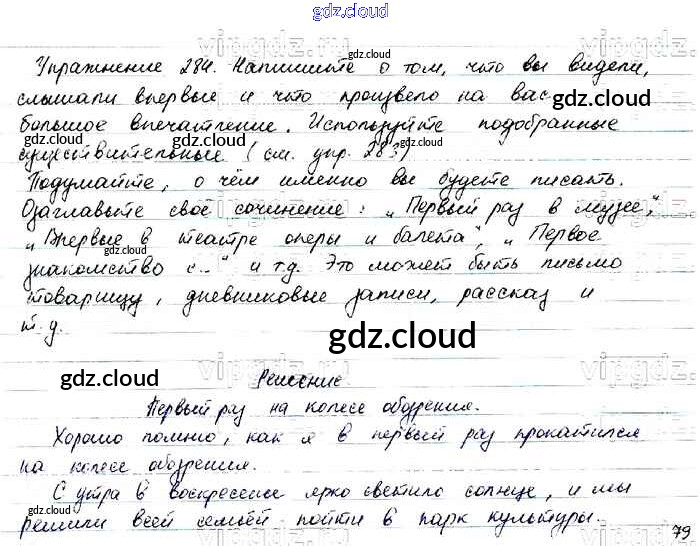 gdz.cloud
Упражнение 284. Напишите о том, что вы видели,
слышали впервые и что произвело на вас
большое впечатление. Используйте подобранные
существительные (см. упр. 283)
Подумайте, о чём именно вы будете писать.
Озаглавьте своё сочинение: „Первый раз в музее“,
„Впервые в театре оперы и балета“, „Первое
знакомство с...“ и т.д. Это может быть письмо
товарищу, дневниковые записи, рассказ и
т.д.
gdz.cloud
Решение
Первый раз на колесе обозрения.
Хорошо помню, как я в первый раз прокатился
на колесе обозрения.
С утра в воскресение ярко светило солнце, и мы
решили всей семьёй пойти в парк культуры.
79